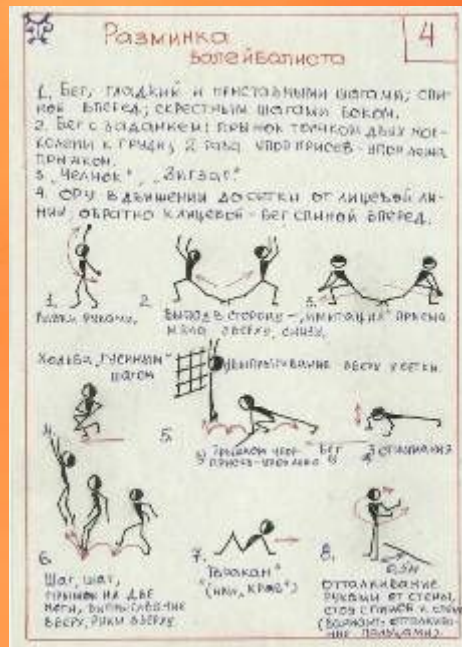 Разминка
волейболиста
4
1. Бег, гладкий и приставными шагами; спи-
ной вперед; скрестным шагами боком.
2. Бег с заданием: прыжок толчком двух ног-
колени к груди; 2 раза упор присев-упор лежа
прыжком.
3. „Челнок“, „Зигзаг“
4. ОРУ в движении до сетки от лицевой ли-
нии, обратно к лицевой - бег спиной вперед.
1.
2.
3.
руками.
Выпад в сторону - „имитация“ приема
мяча сверху, снизу.
Ходьба „гусиным“
шагом
Выпрыгивание вверх у сетки
4.
5.
прыжком упор
присев-упор лежа
Бег
3 отжимания
6.
7.
8.
0,5м
Шаг, шаг,
прыжок на две
ноги, выпрыгивание
вверх, руки вверху.
"Таракан"
(или, краб")
Отталкивание
руками от стены,
стоя спиной к стене
(вариант: отталкива-
ние пальцами).